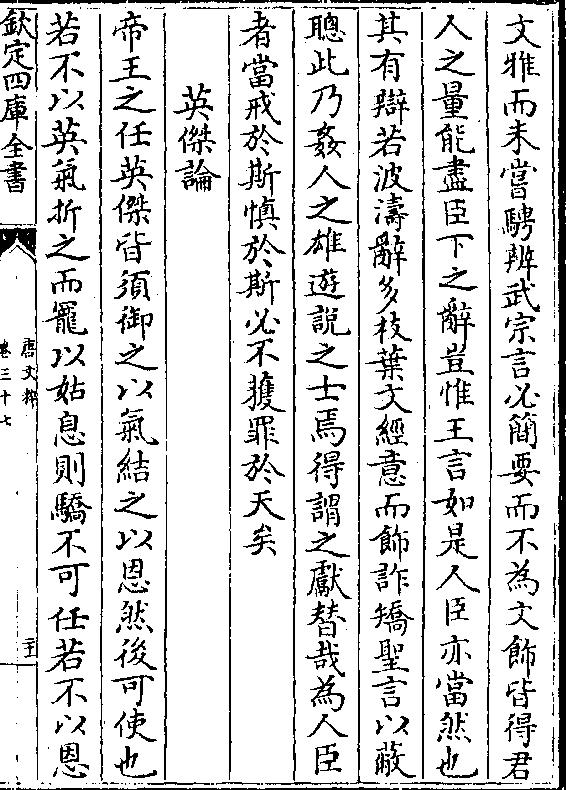 文雅而未嘗騁辨武宗言必簡要而不為文飾皆得君
人之量能盡臣下之辭豈惟王言如是人臣亦當然也
其有辯若波濤辭多枝葉文經意而飾詐矯聖言以蔽
聰此乃姦人之雄遊說之士焉得謂之獻替哉為人臣
者當戒於斯慎於斯必不獲罪於天矣
英傑論
帝王之任英傑皆須御之以氣結之以恩然後可使也
若不以英氣折之而寵以姑息則驕不可任若不以恩
欽定四庫全書
唐文粹
卷三十七